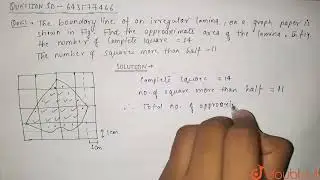 QUESTION ID - 643577466
Ques:- The boundary line of an irregular lamina, on a graph paper is
shown in fig. Find the approximate area of the lamina. In fig.
the number of complete square = 14
The number of square more than half - 11
SOLUTION →
Complete square = 14
no. of square more than half = 11
∴ Total no. of approxi
1cm
1cm